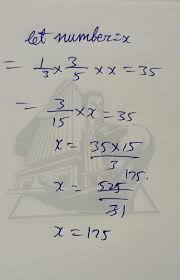 let number=x
= 1/3 × 3/5 × x = 35
= 3/15 × x = 35
x = 35×15/3
x = 525/31 175.
x = 175